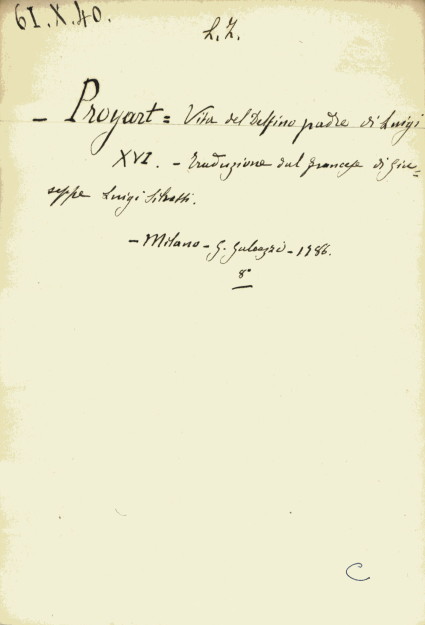 61.X.40.
L.Z.
- Proyart = Vita del Delfino padre di Luigi
XVI. - Traduzione dal francese di Giu=
seppe Luigi
- Milano - G. Galeazzi - 1786.
8°
C